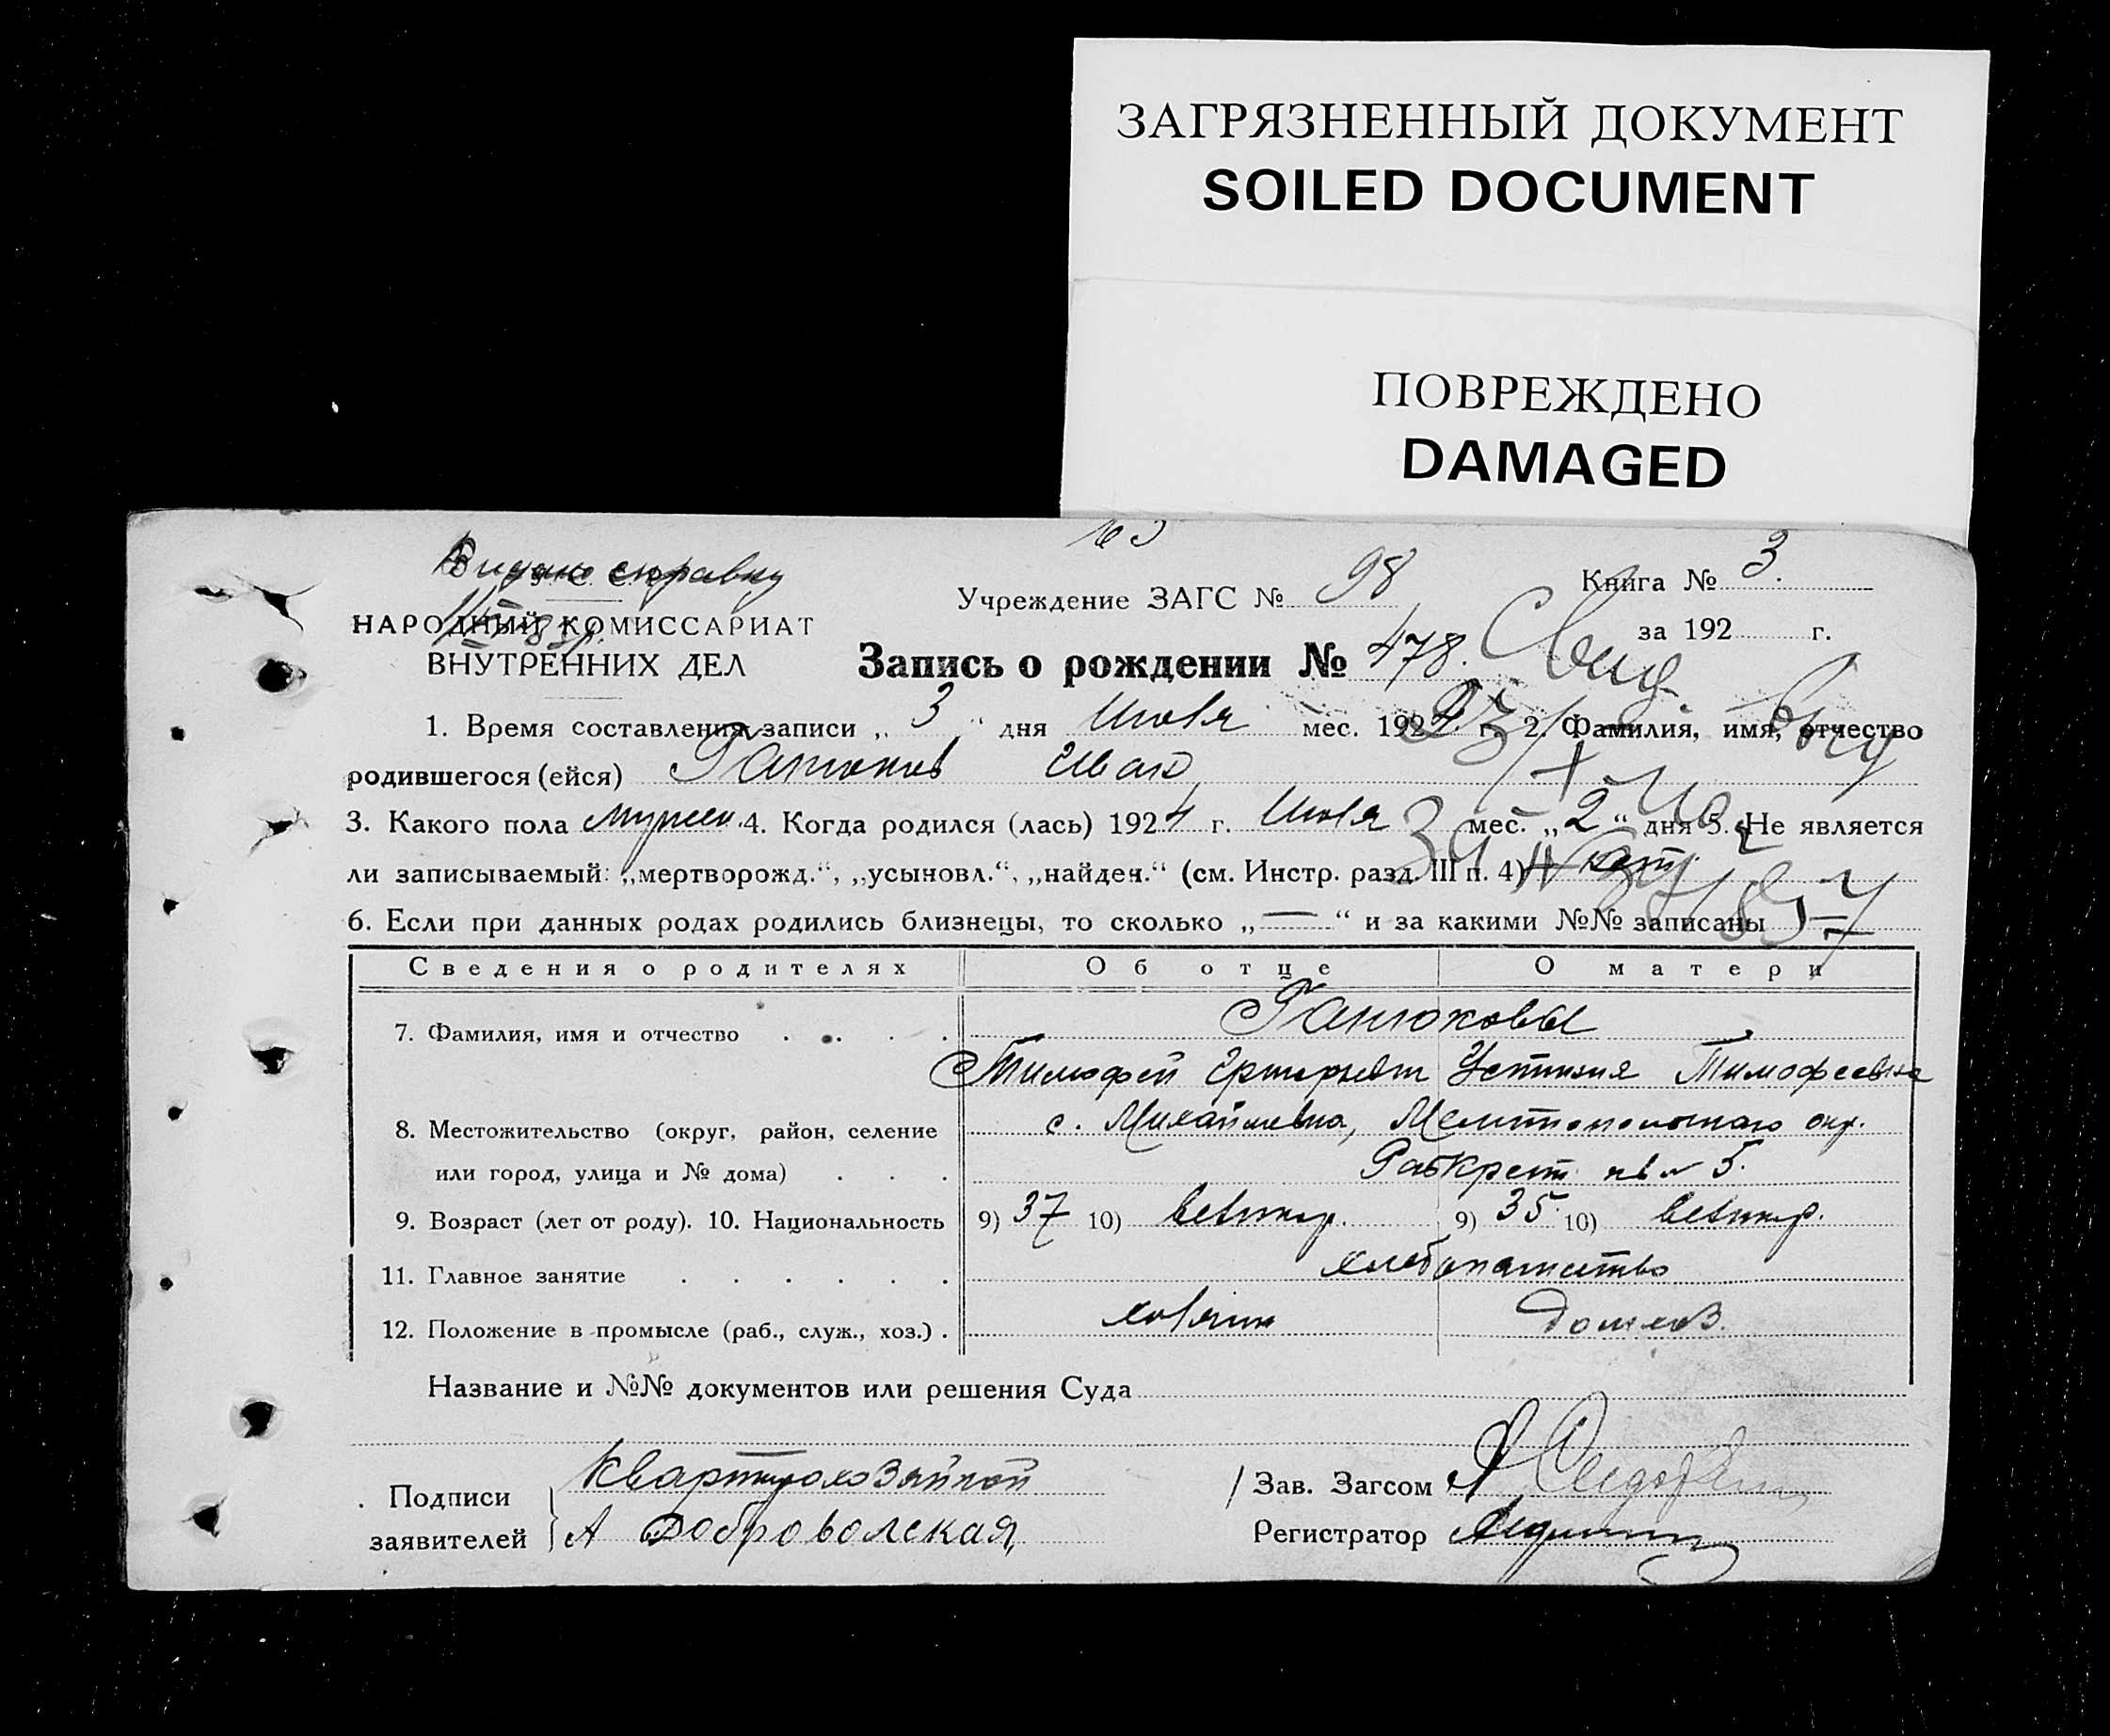 ЗАГРЯЗНЕННЫЙ ДОКУМЕНТ
SOILED DOCUMENT
ПОВРЕЖДЕНО
DAMAGED
справку
Учреждение ЗАГС № 98
Книга № 3.
НАРОДНЫЙ КОМИССАРИАТ
ВНУТРЕННИХ ДЕЛ
за 192 г.
Запись о рождении № 478.
1. Время составления записи „ 3 “ дня Июля мес. 1924 г. 2. Фамилия, имя, отчество
родившегося (ейся) Ганюков Иван
3. Какого пола мужск. 4. Когда родился (лась) 1924 г. Июля мес. „ 2 “ дня 5. Не является
ли записываемый: „мертворожд.“, „усыновл.“, „найден.“ (см. Инстр. разд. III п. 4) нет.
6. Если при данных родах родились близнецы, то сколько „ — “ и за какими №№ записаны
Сведения о родителях Об отце О матери
7. Фамилия, имя и отчество Ганюковы
Тимофей Григорьевич Устиния Тимофеевна
8. Местожительство (округ, район, селение с. Михайловка, Мелитопольского окр.
или город, улица и № дома) 5.
9. Возраст (лет от роду). 10. Национальность 9) 37 10) великор. 9) 35 10) великор.
11. Главное занятие хлебопашество
12. Положение в промысле (раб., служ., хоз.) хозяин домхоз.
Название и №№ документов или решения Суда
Подписи заявителей Квартирохозяйкой
А Добровольская
Зав. Загсом
Регистратор